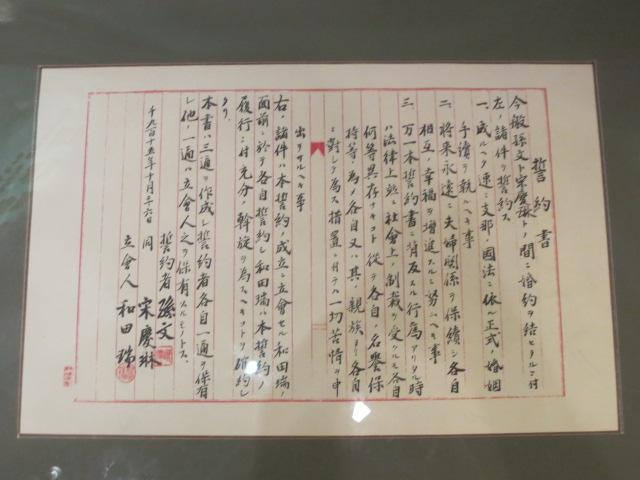 誓約書
今般孫文ト宋慶琳トノ間ニ婚約ヲ結ヒタルニ付
左ノ諸件ヲ誓約ス
一、成ルヘク速ニ支那ノ国法ニ依ル正式ノ婚姻
手續ヲ執ルヘキ事
二、将来永遠ニ夫婦関係ヲ保續シ各自
相互ノ幸福ヲ増進スルニ努ムヘキ事
三、万一本誓約書ニ背反スル行為アリタル時
ハ法律上竝ニ社会上ノ制裁ヲ受クルモ各自
何等異存ナキコト從テ各自ノ名譽保
持等ノ為メ各自又ハ其ノ親族ヨリ各自
ニ對シテ為ス措置ニ付テハ一切苦情ヲ申
出テサルヘキ事
右ノ諸件ハ本誓約ノ成立ニ立會セル和田瑞ノ
面前ニ於テ各自誓約シ和田瑞ハ本誓約ノ
履行ニ付充分ノ斡旋ヲ為スヘキコトヲ確約シ
タリ
本書ハ三通ヲ作成シ誓約者各自一通ヲ保有
シ他ノ一通ハ立會人之ヲ保有スルモノトス
千九百十五年十月二六日
誓約者 孫文
同 宋慶琳
立會人 和田瑞